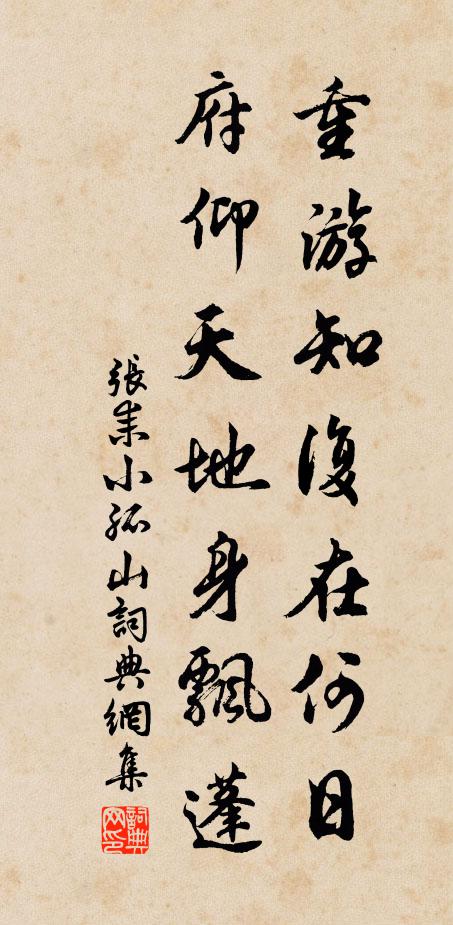 重游知復在何日
府仰天地身飄蓬
張耒小孤山詞典網集
詞典网印